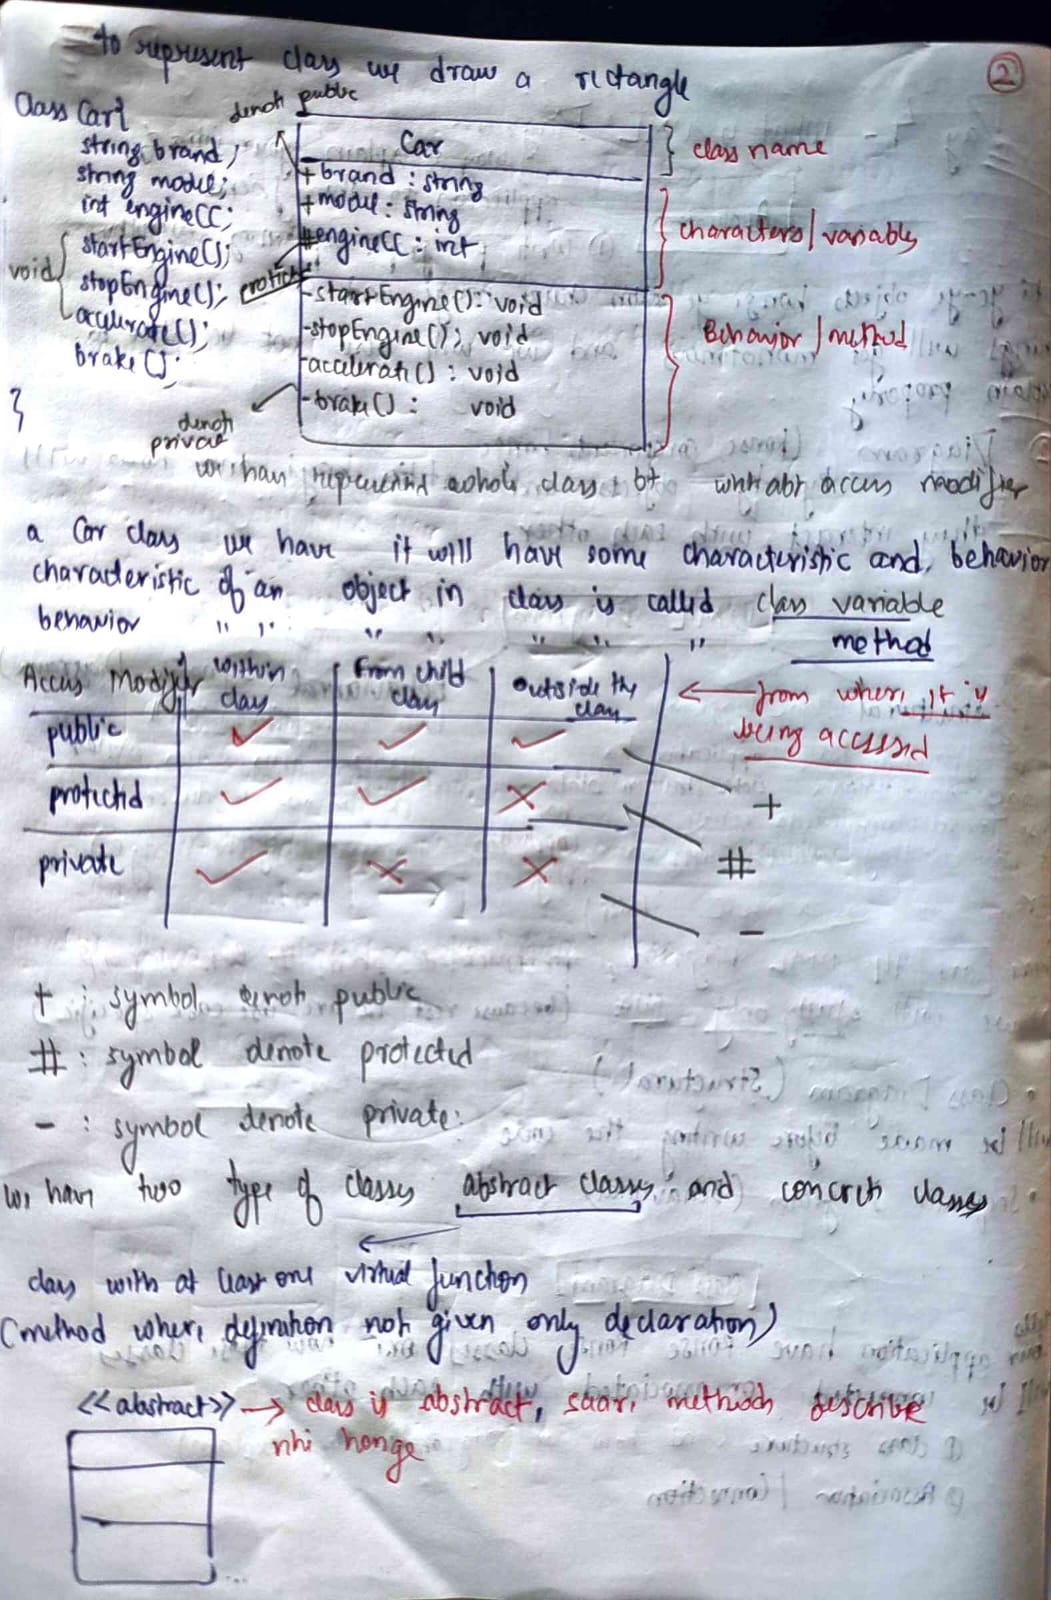 to represent class we draw a rictangle
2
Class Car {
string brand;
string model;
int engineCC;
void
startEngine();
stopEngine();
accelerate();
brake();
}
denote public
Car
+ brand : string
+ model : string
# engineCC : int
- startEngine() : void
- stopEngine() ; void
- accelerate() : void
- brake() : void
denote
private
class name
characters / variables
Behavior / method
we have represented whole class, bt what abt access modifier
a Car class we have it will have some characteristic and behavior
characteristic of an object in class is called class variable
behavior " " " " " " " method
Access Modifier within class From child class outside the class
from where it is
being accessed
public ✓ ✓ ✓ +
protected ✓ ✓ ✗ #
private ✓ ✗ ✗ -
+ : symbol denote public
# : symbol denote protected
- : symbol denote private.
we have two type of classes abstract classes and concrete classes
class with at least one virtual function
(method where defination not given only declaration)
<<abstract>> → class is abstract, saare methods describe
nhi honge